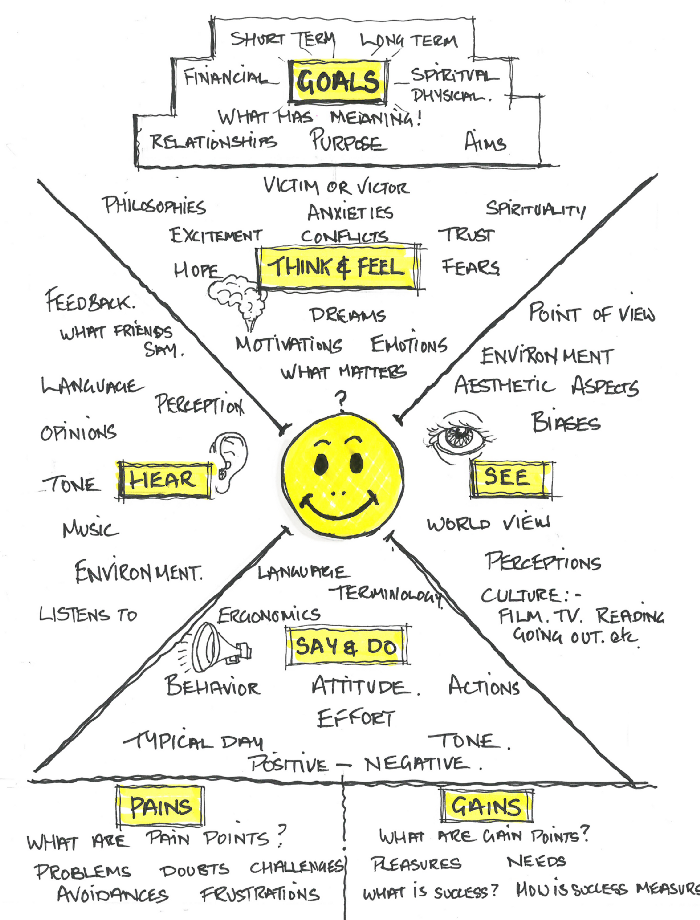 SHORT TERM LONG TERM
FINANCIAL GOALS SPIRITUAL
PHYSICAL.
WHAT HAS MEANING!
RELATIONSHIPS PURPOSE AIMS
VICTIM OR VICTOR
PHILOSOPHIES ANXIETIES SPIRITUALITY
EXCITEMENT CONFLICTS TRUST
HOPE THINK & FEEL FEARS
DREAMS
MOTIVATIONS EMOTIONS
WHAT MATTERS
?
FEEDBACK.
WHAT FRIENDS
SAY.
LANGUAGE
PERCEPTION
OPINIONS
TONE HEAR
MUSIC
ENVIRONMENT.
LISTENS TO
POINT OF VIEW
ENVIRONMENT
AESTHETIC ASPECTS
BIASES
SEE
WORLD VIEW
PERCEPTIONS
CULTURE:-
FILM. TV. READING
GOING OUT. etc.
LANGUAGE
TERMINOLOGY
ERGONOMICS
SAY & DO
BEHAVIOR ATTITUDE. ACTIONS
EFFORT
TYPICAL DAY TONE.
POSITIVE – NEGATIVE.
PAINS
WHAT ARE PAIN POINTS?
PROBLEMS DOUBTS CHALLENGES
AVOIDANCES FRUSTRATIONS
GAINS
WHAT ARE GAIN POINTS?
PLEASURES NEEDS
WHAT IS SUCCESS? HOW IS SUCCESS MEASURE